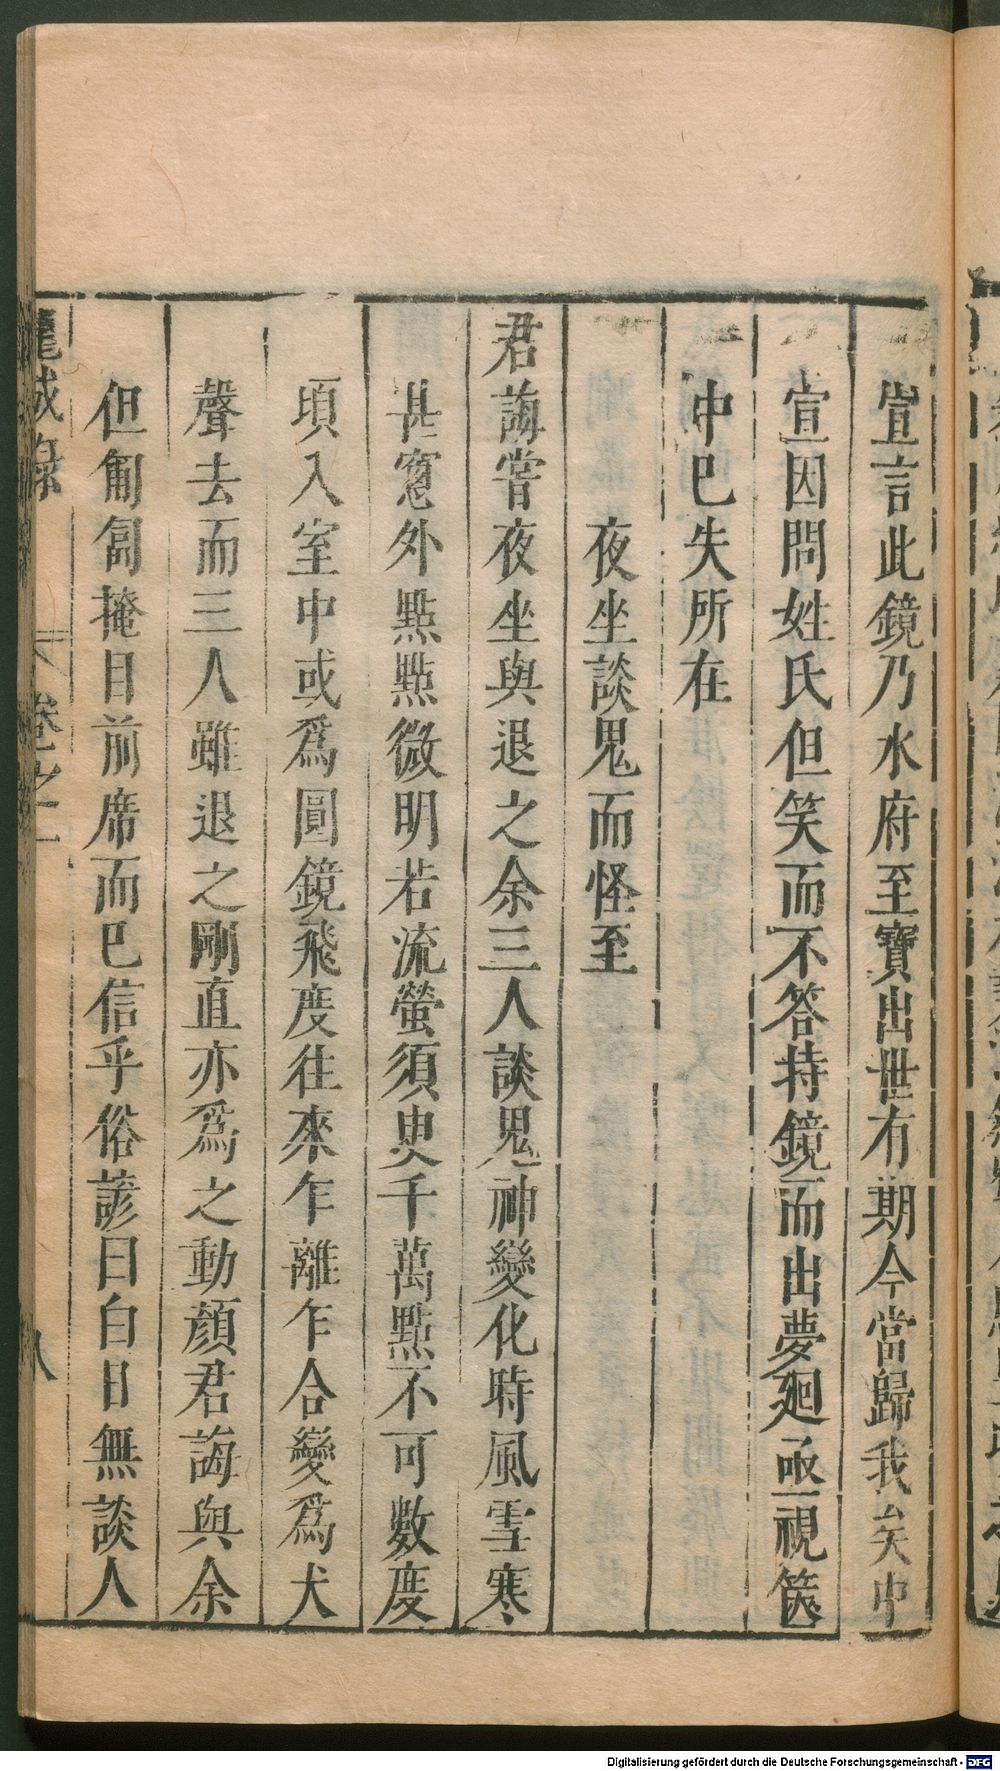 宣言此鏡乃水府至寶出世有期今當歸我矣中
宣因問姓氏但笑而不答持鏡而出夢廻亟視篋
中巳失所在
夜坐談鬼而怪至
君誨嘗夜坐與退之余三人談鬼神變化時風雪寒
甚窻外點點微明若流螢須臾千萬點不可數度
頃入室中或爲圓鏡飛度往來乍離乍合變爲大
聲去而三人雖退之剛直亦爲之動顏君誨與余
但匍匐掩目前席而巳信乎俗諺曰白日無談人
龍城錄
卷之上
八
Digitalisierung gefördert durch die Deutsche Forschungsgemeinschaft - DFG